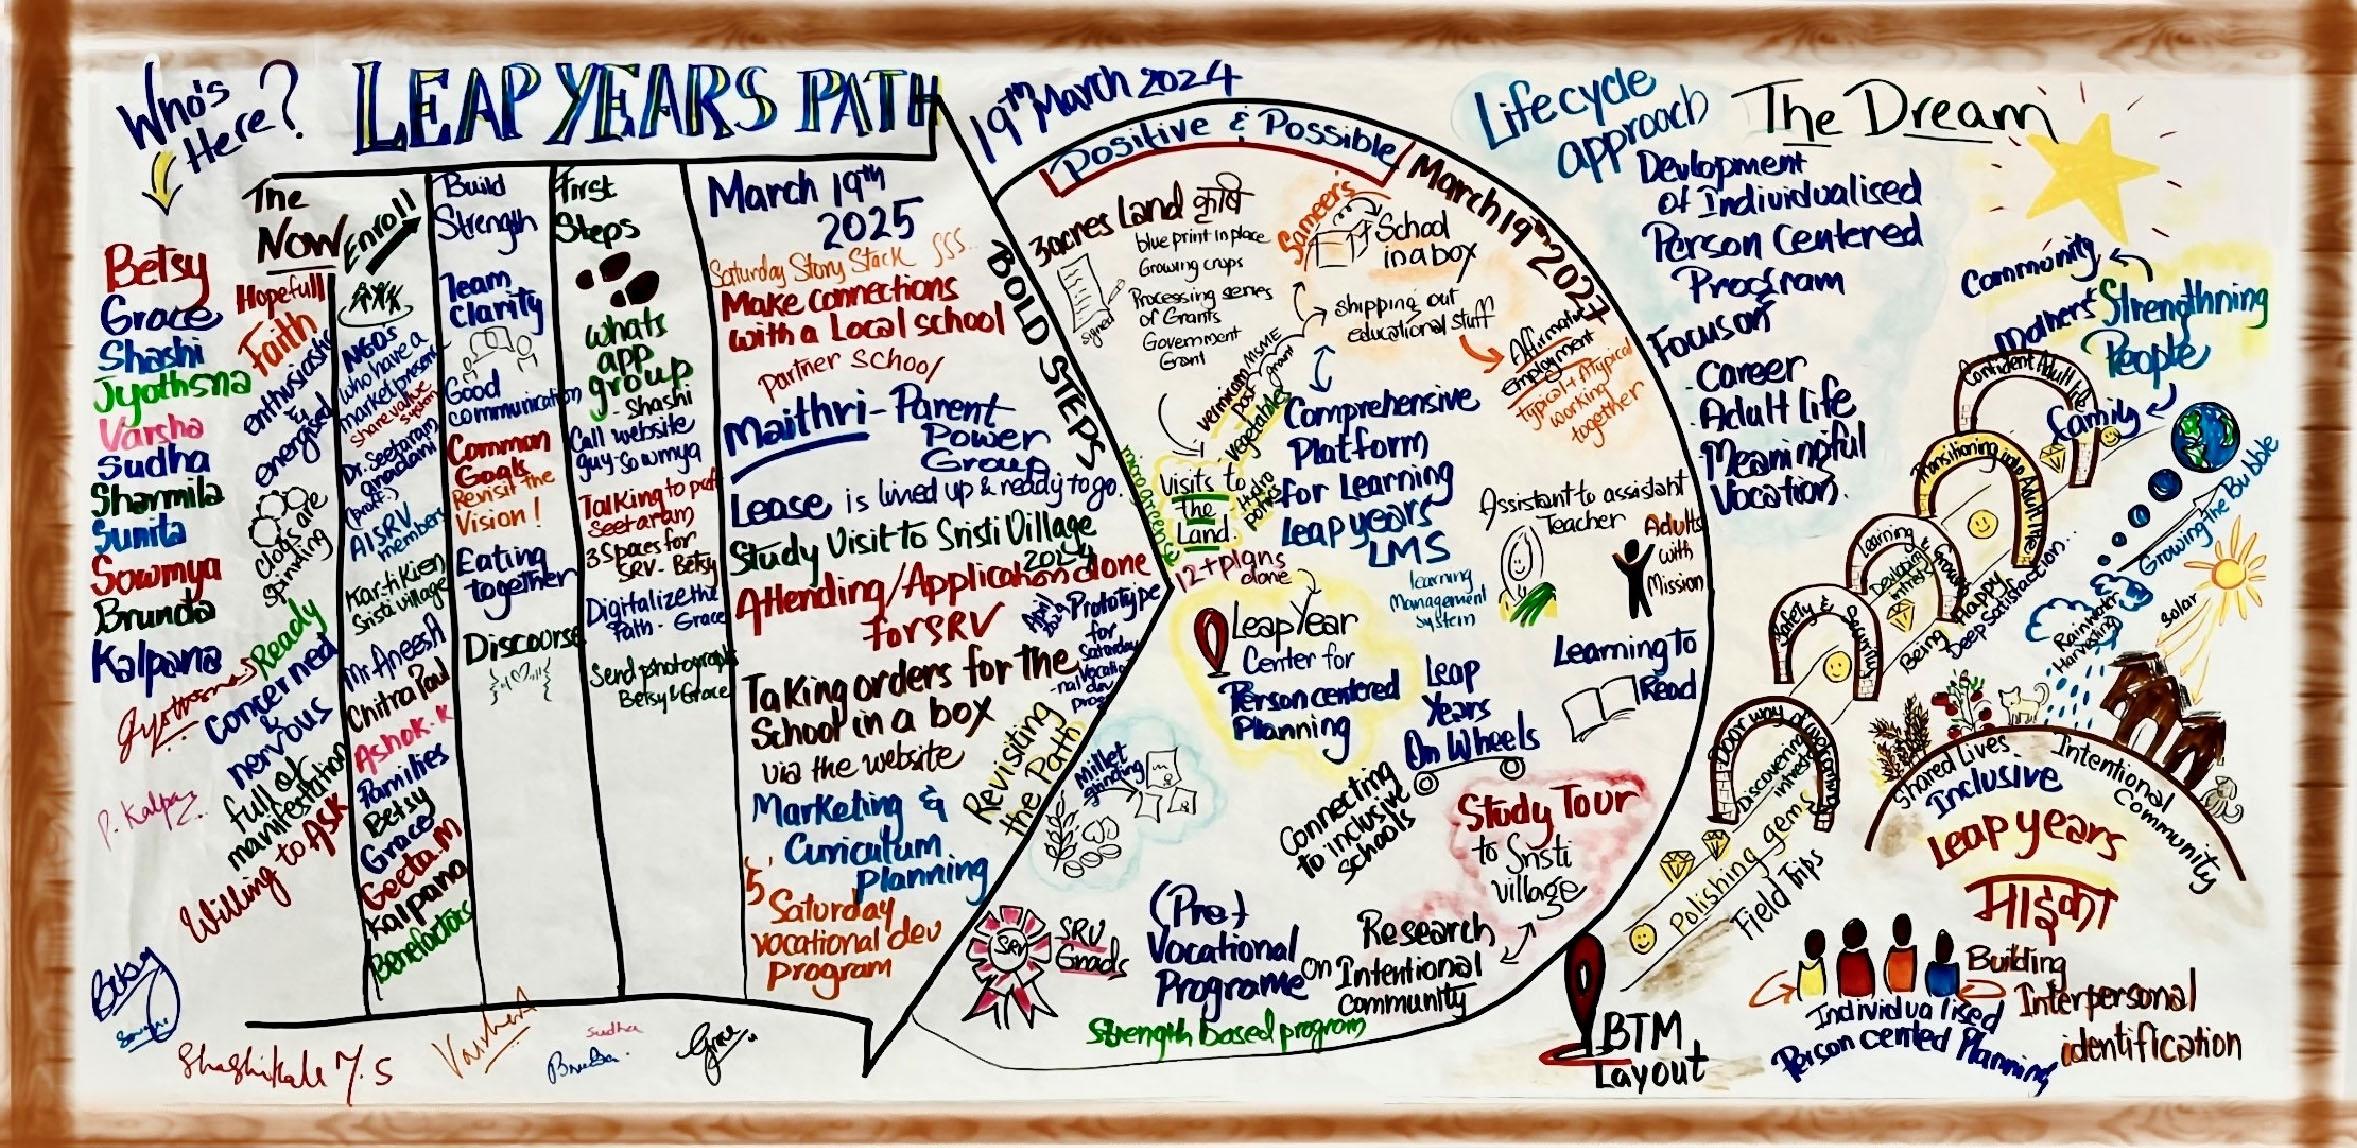 Who's
Here?
LEAP YEARS PATH
19th March 2024
Betsy
Grace
Shashi
Jyothsna
Varsha
Sudha
Sharmila
Sunita
Sowmya
Brunda
Kalpana
The
NOW
Hopefull
Faith
enthusiastic
&
energised
clogs are
spinning
Ready
concerned
&
nervous
full of
manifestation
Willing to ASK
Enroll
NGOs
who have a
market presence
share value
system
Dr. Seetaram
(prof.)
AISRV
members
Kartikien
Sristi village
Mr. Aneesh
Chitra Paul
Ashok.K
Families
Betsy
Grace
Geeta.M
Kalpana
Benefactors
Build
Strength
Team
Clarity
Good
communication
Common
Goals
Revisit the
Vision!
Eating
together
Discourse
First
Steps
whats
app
group
- Shashi
Call website
guy-Sowmya
Talking to prof
Seetaram
3 Spaces for
SRV- Betsy
Digitalize the
Path- Grace
Send photographs
Betsy & Grace
March 19th
2025
Saturday Story Stack
Make connections
with a Local school
Partner School
Maithri-Parent
Power
Group
Lease is lined up & ready to go.
Study Visit to Sristi Village
2024
Attending/Application done
for SRV
Prototype
for
Saturday
vocatio
-nal
dev
prog
Taking orders for the
School in a box
via the website
Marketing &
Curriculum
planning
5
Saturday
vocational dev
program
Revisiting
the Path
BOLD STEPS
Positive & Possible
March 19th 2027
3 acres Land कृषि
blue print in place
Growing crops
Processing series
of Grants
Government
Grant
signed
Sameer's
School
in a box
Shipping out
educational stuff
Affirmative
Employment
typical + Atypical
working
together
MSME
grant
vegetables
microgreens
Hydro
ponics
Visits to
the
Land.
12+ plans
done
Comprehensive
Platform
for Learning
Leap years
LMS
learning
Management
System
Assistant to assistant
Teacher
Adults
with
Mission
Leap Year
Center for
Person centered
Planning
Learning to
Read
Leap
Years
On Wheels
Connecting
to inclusive
schools
Millet
grinding
Study Tour
to Sristi
village
SRV
SRV
Grads
(Pre)
Vocational
Programe
Research
on Intentional
community
Strength based program
Lifecycle
approach
The Dream
Devlopment
of Individualised
Person Centered
Program
Focus on
- Career
. Adult life
. Meaningful
Vocation.
Community
Mothers
Strengthning
People
Family
Confident Adult life
Transitioning into Adult life
Learning & Growing
Developing
interests
Safety & Security
Doorway of welcoming
Discovering
interests
Being Happy
Deep Satisfaction...
Growing the Bubble
Rainwater
Harvesting
Solar
Polishing gems
Field Trips
Shared Lives
Intentional
Community
Inclusive
Leap years
माइका
Individualised
Person cented Planning
Building
Interpersonal
identification
BTM
Layout
Jyothsna
P. Kalpa
Betsy
Shashikala M.S
Varsha
Brunda.
Sudha
Grace.